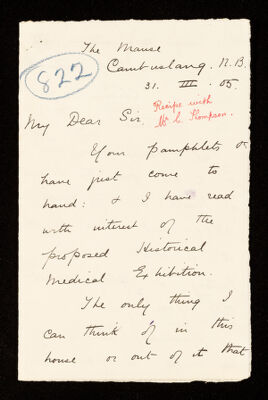 The Manse
Cambuslang. N.B.
822
31. III. 05.
Recipe with
Mr C. Thompson.
My Dear Sir,
Your pamphlets &
have just come to
hand: & I have read
with interest of the
proposed Historical
Medical Exhibition.
The only thing I
can think of in this
house or out of it that